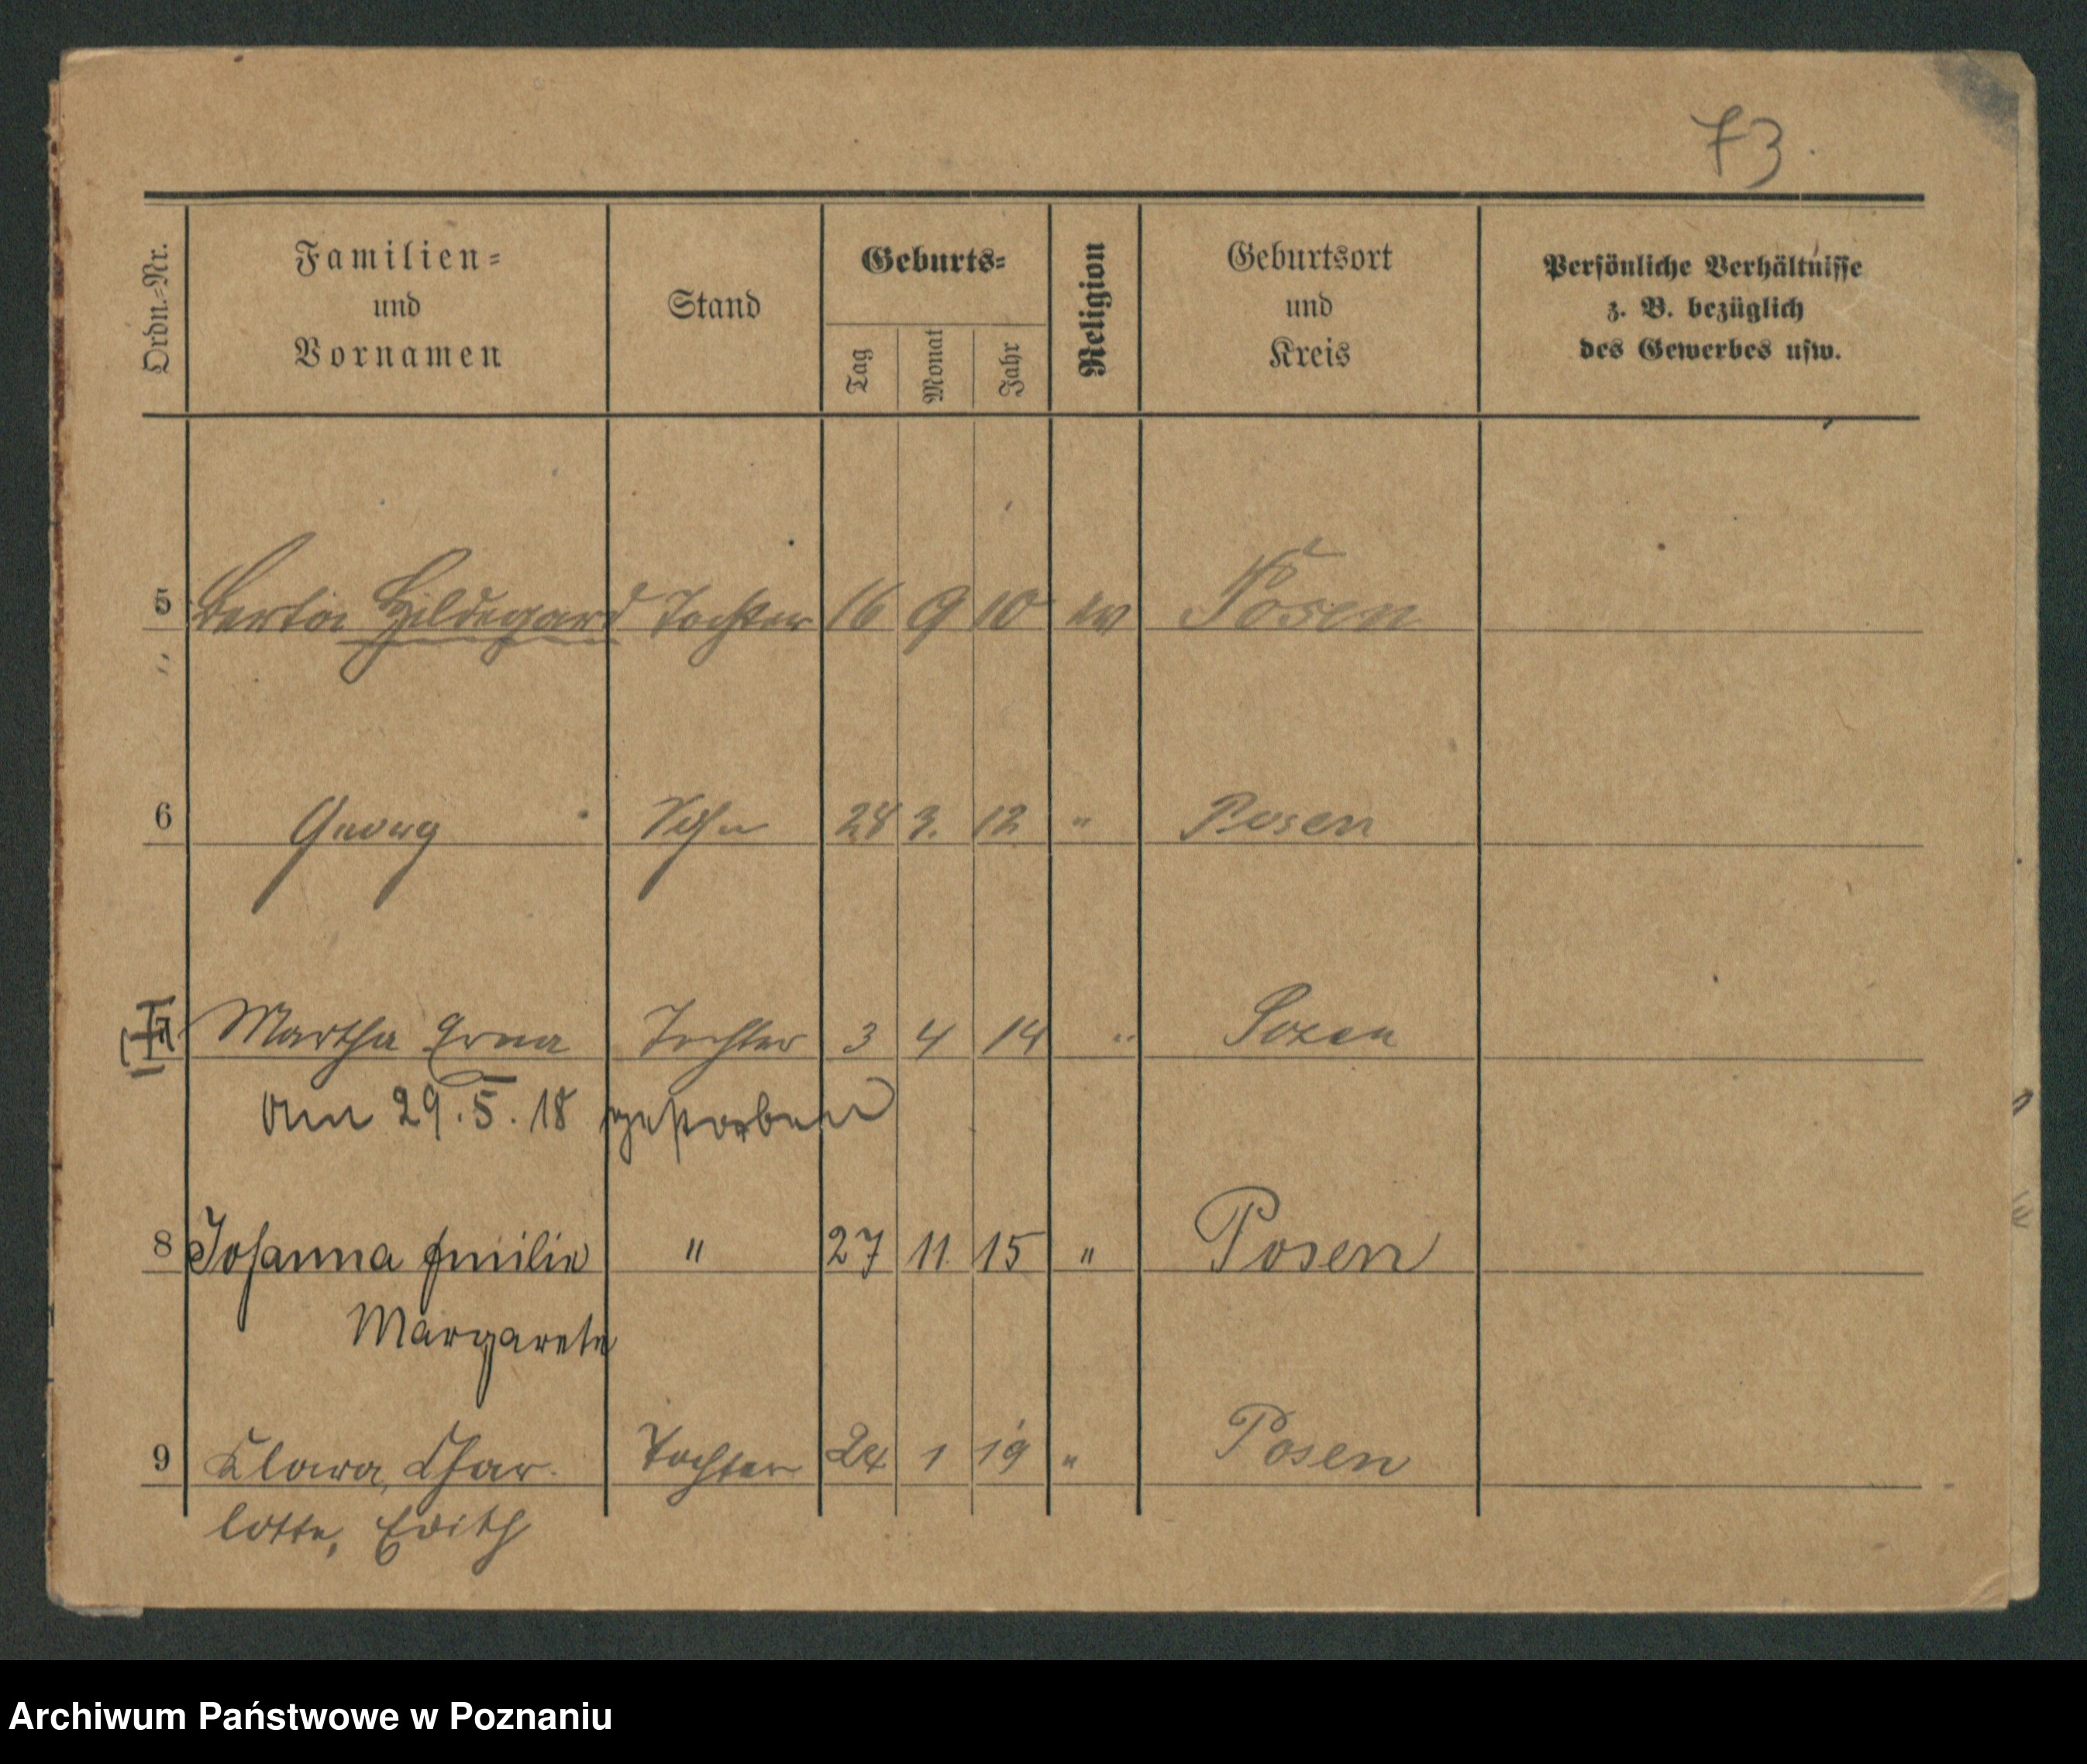 73.
Ordn.-Nr. Familien- und Vornamen Stand Geburts- Tag Monat Jahr Religion Geburtsort und Kreis Persönliche Verhältnisse z. B. bezüglich des Gewerbes usw.
5 Berta Hildegard Tochter 16 9 10 ev Posen
6 Georg Sohn 28 3. 12 " Posen
7 Martha Erna Tochter 3 4 14 " Posen
Am 29.5.18 gestorben
8 Johanna Emilie " 27 11. 15 " Posen
Margarete
9 Klara, Char- Tochter 24 1 19 " Posen
lotte, Edith
Archiwum Państwowe w Poznaniu